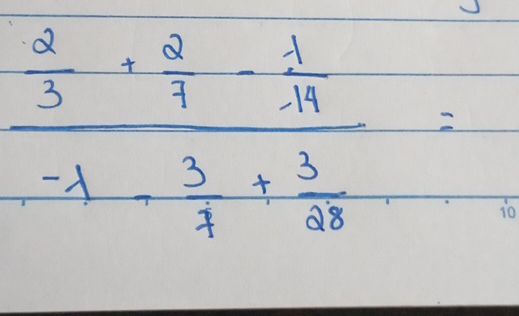 2/3 + 2/7 - 1/14
-1 - 3/7 + 3/28 =
10